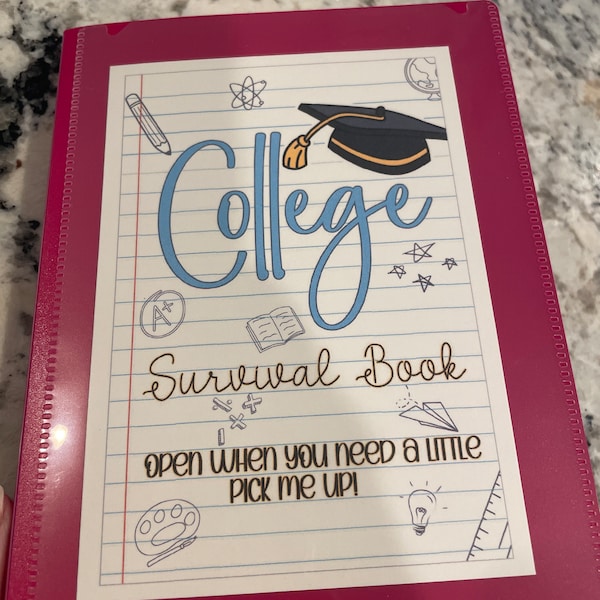 College
A+
Survival Book
OPEN WHEN YOU NEED A LITTLE
PICK ME UP!